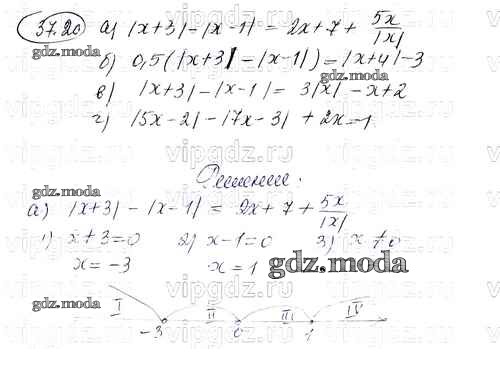 37.20 а) |x+3|-|x-1| = 2x+7+ 5x/|x|
б) 0,5(|x+3|-|x-1|)=|x+4|-3
в) |x+3|-|x-1| = 3|x| -x+2
г) |5x-2|-|7x-3| +2x=-1
Решение.
а) |x+3| - |x-1| = 2x+7+ 5x/|x|
1) x+3=0 2) x-1=0 3) x≠0
x=-3 x=1
I II III IV
-3 0 1
gdz.moda
vipgdz.ru